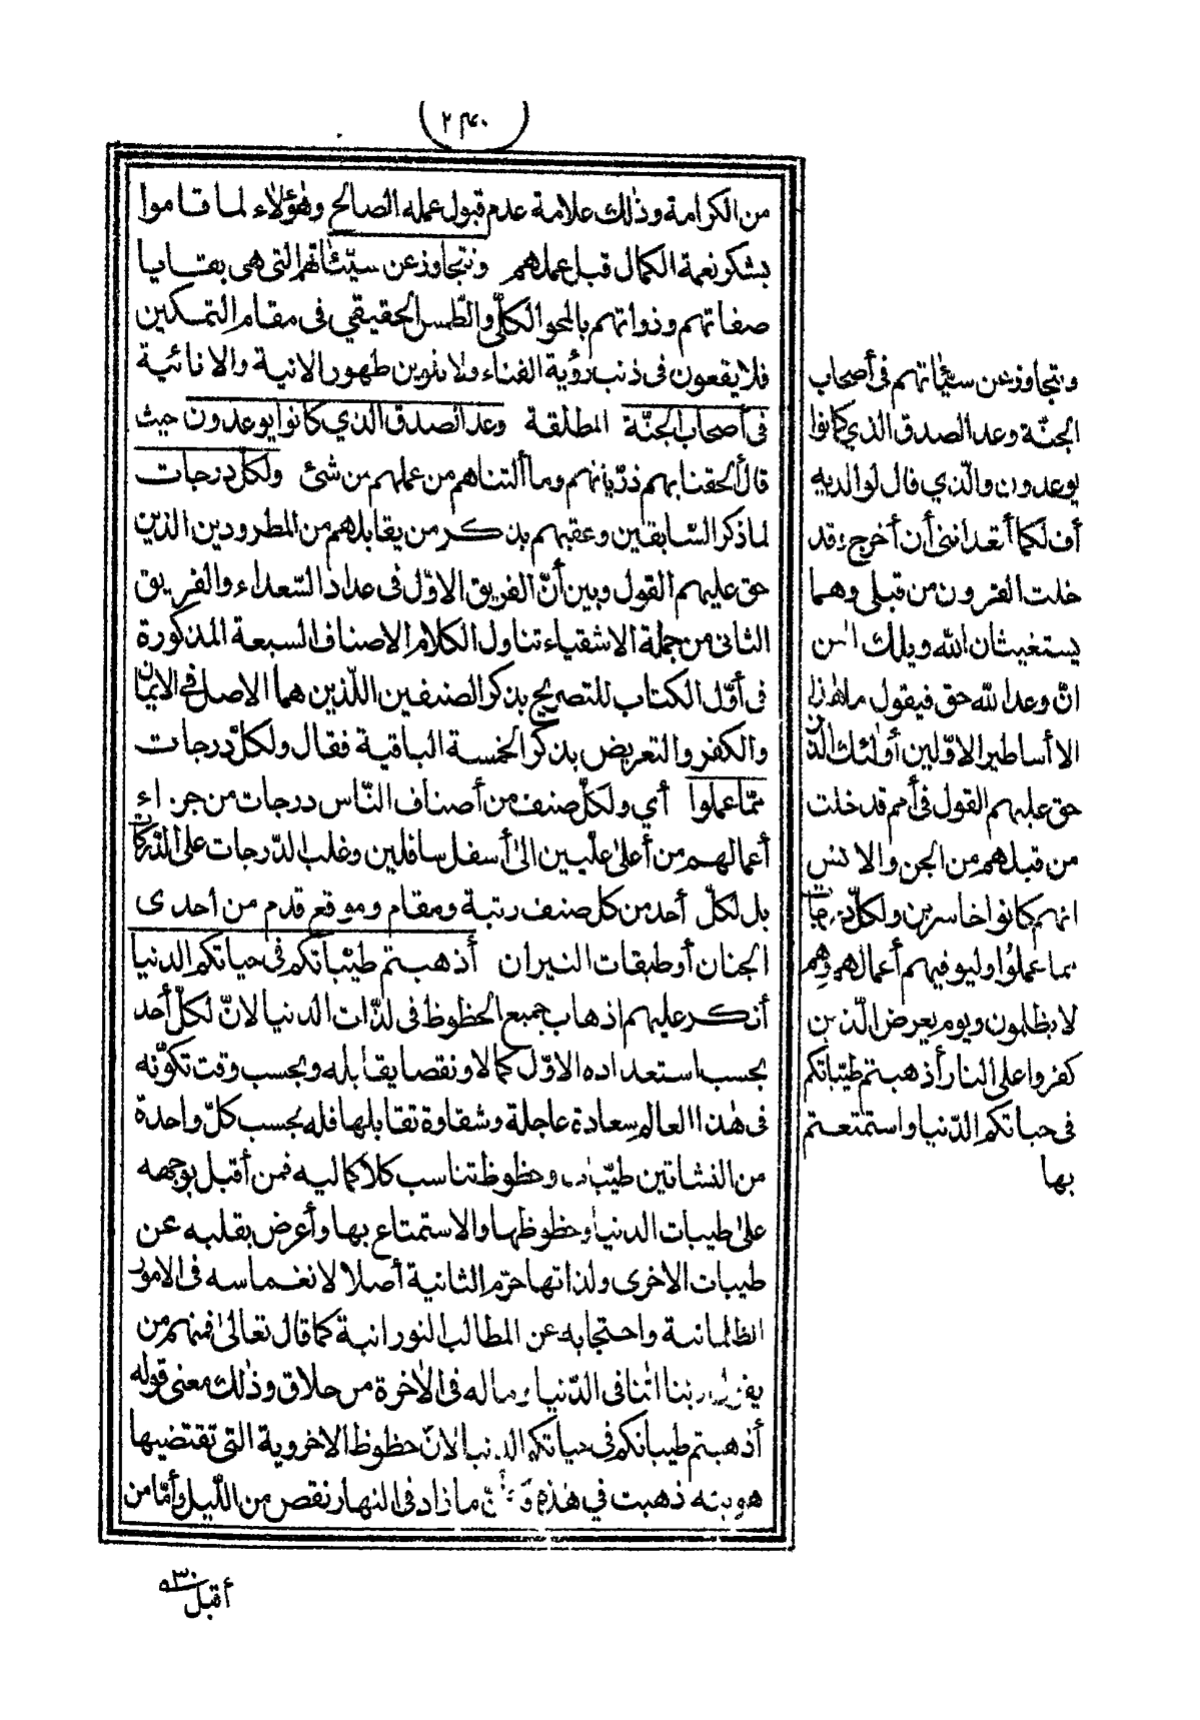 ٢٤٠
من الكرامة وذلك علامة عدم قبول عمله الصالح وهٰؤلاء لما قاموا
بشكر نعمة الكمال قبل عملهم ونتجاوز عن سيّئاتهم التي هى بقايا
صفاتهم وذواتهم بالمحو الكلّى والطّمس الحقيقي فى مقام التمكين
فلا يقعون فى ذنب رؤية الفناء ولا تلوين ظهور الانية والانائية
فى أصحاب الجنّة المطلقة وعد الصدق الذي كانوا يوعدون حيث
قال ألحقنا بهم ذرّياتهم وما ألتناهم من عملهم من شئ ولكل درجات
لما ذكر السّابقين وعقبهم بذكر من يقابلهم من المطرودين الذين
حق عليهم القول وبين أنّ الفريق الاوّل فى عداد السّعداء والفريق
الثانى من جملة الاشقياء تناول الكلام الاصناف السبعة المذكورة
فى أوّل الكتاب للتصريح بذكر الصنفين اللّذين هما الاصل فى الايمان
والكفر والتعريض بذكر الخمسة الباقية فقال ولكلّ درجات
ممّا عملوا أي ولكلّ صنف من أصناف النّاس درجات من جزاء
أعمالهم من أعلىٰ علّيين الىٰ أسفل سافلين وغلب الدّرجات على الدّركات
بل لكلّ أحد من كل صنف رتبة ومقام وموقع قدم من احدى
الجنان أو طبقات النيران أذهبتم طيّباتكم فى حياتكم الدنيا
أنكر عليهم اذهاب جميع الحظوظ فى لذّات الدنيا لانّ لكلّ أحد
بحسب استعداده الاوّل كمالا ونقصا يقابله وبحسب وقت تكوّنه
فى هٰذا العالم سعادة عاجلة وشقاوة تقابلها فله بحسب كلّ واحدة
من النشاتين طيّبات وحظوظ تناسب كلا كماليه فمن أقبل بوجهه
علىٰ طيبات الدنيا وحظوظها والاستمتاع بها وأعرض بقلبه عن
طيبات الاخرى ولذاتها حرّم الثانية أصلا لانغماسه فى الامور
الظلمانية واحتجابه عن المطالب النورانية كما قال تعالىٰ فمنهم من
يقول ربنا اٰتنا فى الدّنيا وماله فى الاٰخرة من خلاق وذٰلك معنى قوله
أذهبتم طيباتكم فى حياتكم الدنيا لانّ حظوظ الاخروية التى تقتضيها
هويته ذهبت في هٰذه ما زاد فى النهار نقص من اللّيل وأمّا من
ونتجاوز عن سيّئاتهم فى أصحاب
الجنّة وعد الصدق الذي كانوا
يوعدون والّذي قال لوالديه
أف لكما أتعدانني أن أخرج وقد
خلت القرون من قبلى وهما
يستغيثان الله ويلك اٰمن
انّ وعد الله حق فيقول ما هٰذا
الا أساطير الاوّلين أولٰئك الّذين
حق عليهم القول فى أمم قد خلت
من قبلهم من الجن والانس
انهم كانوا خاسرين ولكلّ درجات
بما عملوا وليوفيهم أعمالهم وهم
لا يظلمون ويوم يعرض الّذين
كفروا على النار أذهبتم طيّباتكم
فى حياتكم الدّنيا واستمتعتم
بها
أقبل